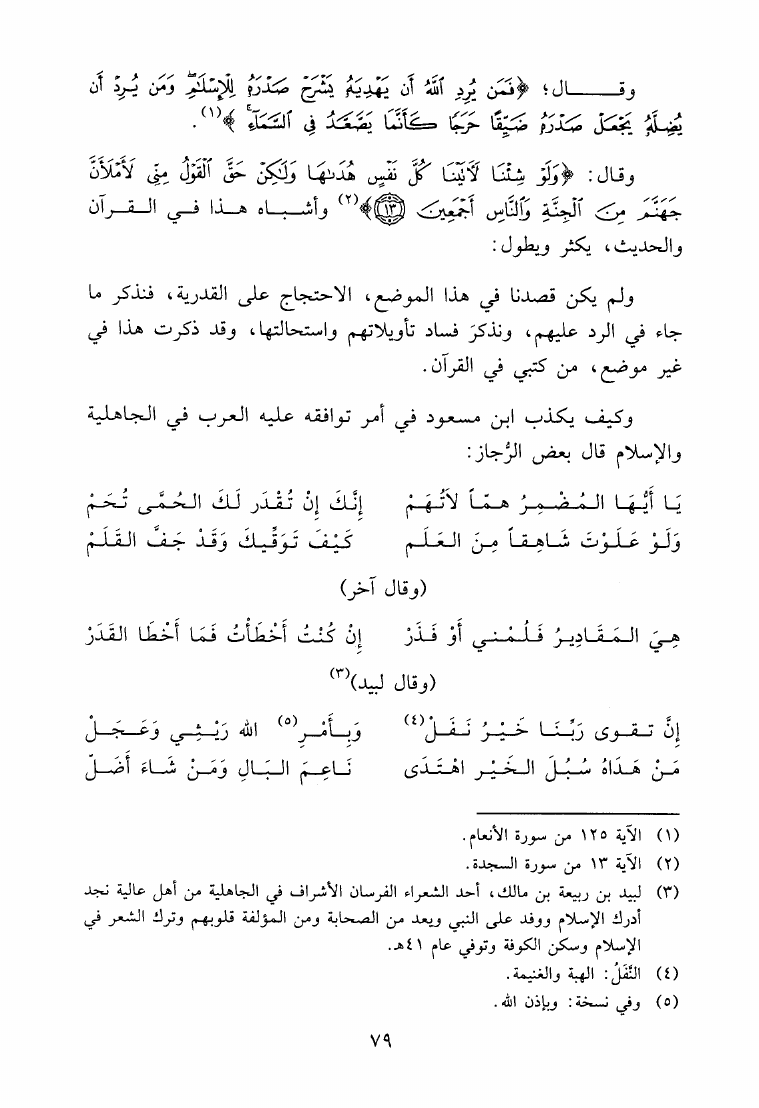 وقــــــال؛ ﴿فَمَن يُرِدِ ٱللَّهُ أَن يَهْدِيَهُۥ يَشْرَحْ صَدْرَهُۥ لِلْإِسْلَٰمِ ۖ وَمَن يُرِدْ أَن
يُضِلَّهُۥ يَجْعَلْ صَدْرَهُۥ ضَيِّقًا حَرَجًا كَأَنَّمَا يَصَّعَّدُ فِى ٱلسَّمَآءِ ۚ﴾(١).
وقال: ﴿وَلَوْ شِئْنَا لَءَاتَيْنَا كُلَّ نَفْسٍ هُدَىٰهَا وَلَٰكِنْ حَقَّ ٱلْقَوْلُ مِنِّى لَأَمْلَأَنَّ
جَهَنَّمَ مِنَ ٱلْجِنَّةِ وَٱلنَّاسِ أَجْمَعِينَ ١٣﴾(٢) وأشباه هذا في القرآن
والحديث، يكثر ويطول:
ولم يكن قصدنا في هذا الموضع، الاحتجاج على القدرية، فنذكر ما
جاء في الرد عليهم، ونذكرَ فساد تأويلاتهم واستحالتها، وقد ذكرت هذا في
غير موضع، من كتبي في القرآن.
وكيف يكذب ابن مسعود في أمر توافقه عليه العرب في الجاهلية
والإسلام قال بعض الرُّجاز:
يَا أَيُّهَا المُضْمِرُ همّاً لاَتُهَمْ إِنَّكَ إِنْ تُقْدَر لَكَ الحُمَّى تُحَمْ
وَلَوْ عَلَوْتَ شَاهِقاً مِنَ العَلَم كَيْفَ تَوَقِّيكَ وَقَدْ جَفَّ القَلَمْ
(وقال آخر)
هِيَ المَقَادِيرُ فَلُمْني أَوْ فَذَرْ إِنْ كُنْتُ أَخْطَأْتُ فَمَا أَخْطَا القَدَرْ
(وقال لبيد)(٣)
إِنَّ تقوى رَبِّنَا خَيْرُ نَفَلْ(٤) وَبِأَمْرِ(٥) الله رَيْثِي وَعَجَلْ
مَنْ هَدَاهُ سُبُلَ الخَيْر اهْتَدَى نَاعِمَ البَالِ وَمَنْ شَاءَ أَضَلّ
(١) الآية ١٢٥ من سورة الأنعام.
(٢) الآية ١٣ من سورة السجدة.
(٣) لبيد بن ربيعة بن مالك، أحد الشعراء الفرسان الأشراف في الجاهلية من أهل عالية نجد
أدرك الإسلام ووفد على النبي ويعد من الصحابة ومن المؤلفة قلوبهم وترك الشعر في
الإسلام وسكن الكوفة وتوفي عام ٤١هـ.
(٤) النَّفَلُ: الهبة والغنيمة.
(٥) وفي نسخة: وبإذن الله.
٧٩